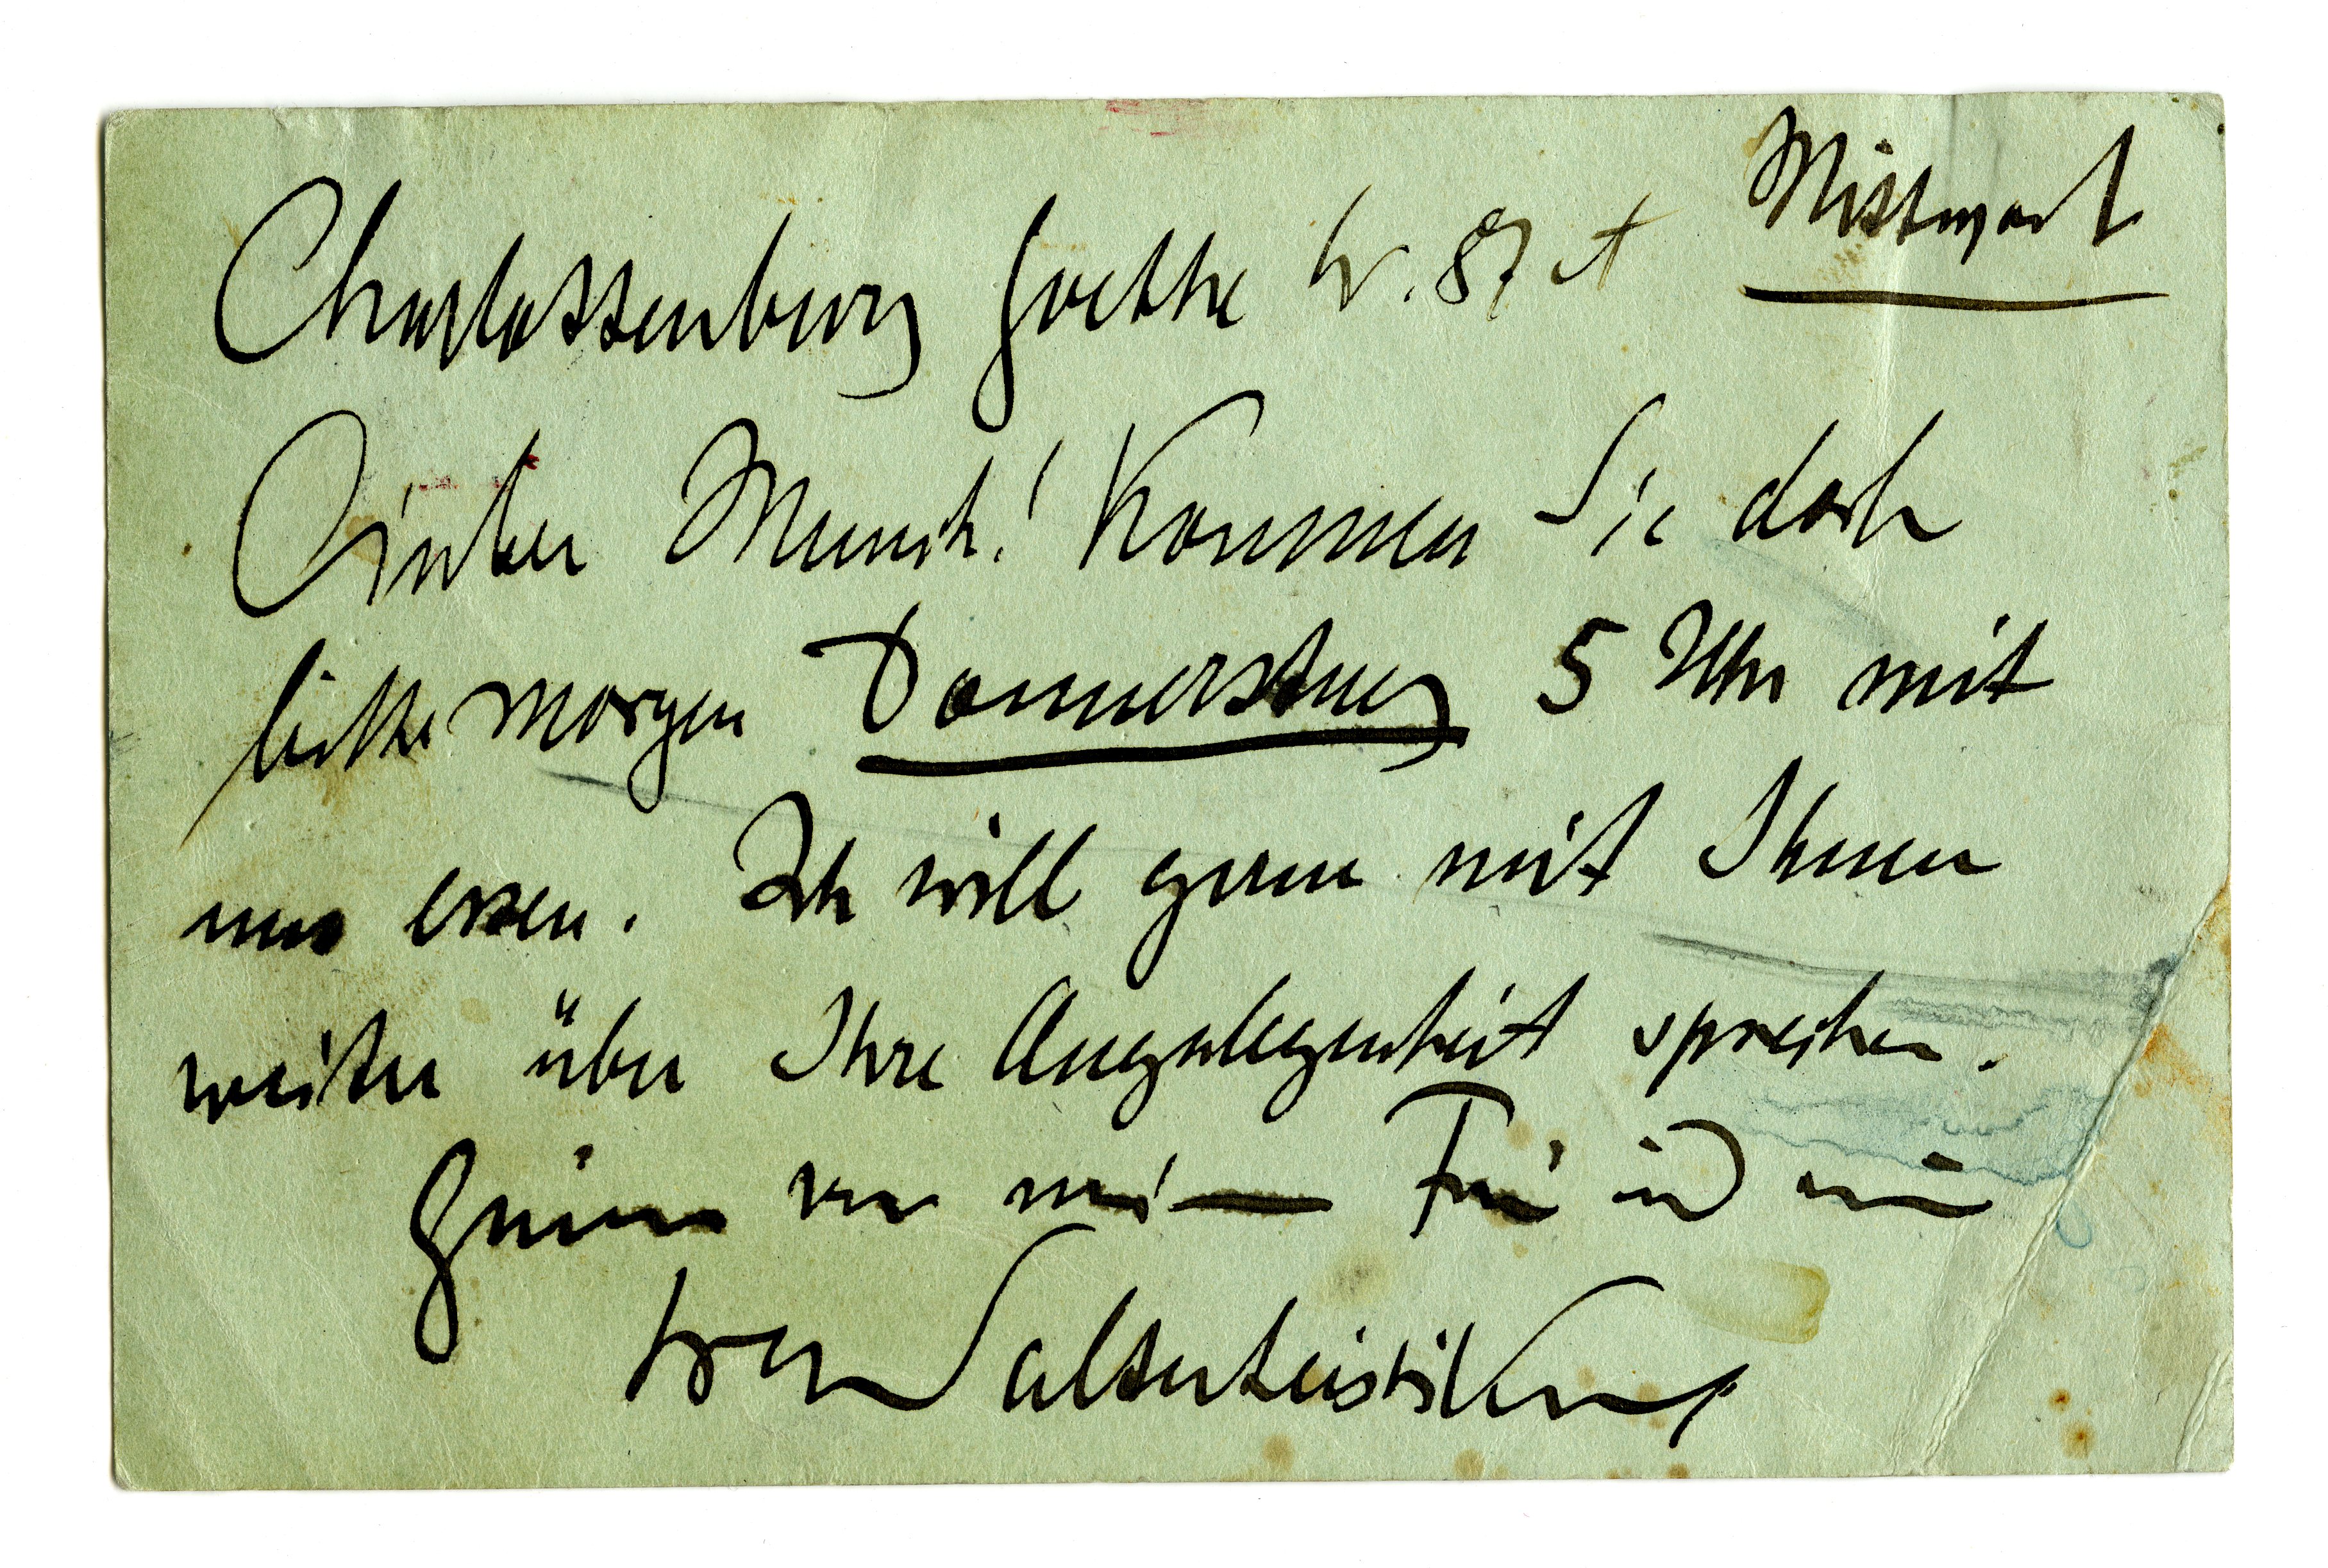 Mittwoch
Charlottenburg Goethe str. 87
Lieber Munch! Kommen Sie doch
bitte morgen Donnerstag 5 Uhr mit
uns essen. Ich will gerne mit Ihnen
weiter über Ihre Angelegenheit sprechen.
Grüsse von meiner Frau und mir
Ihr Walter Leistikow